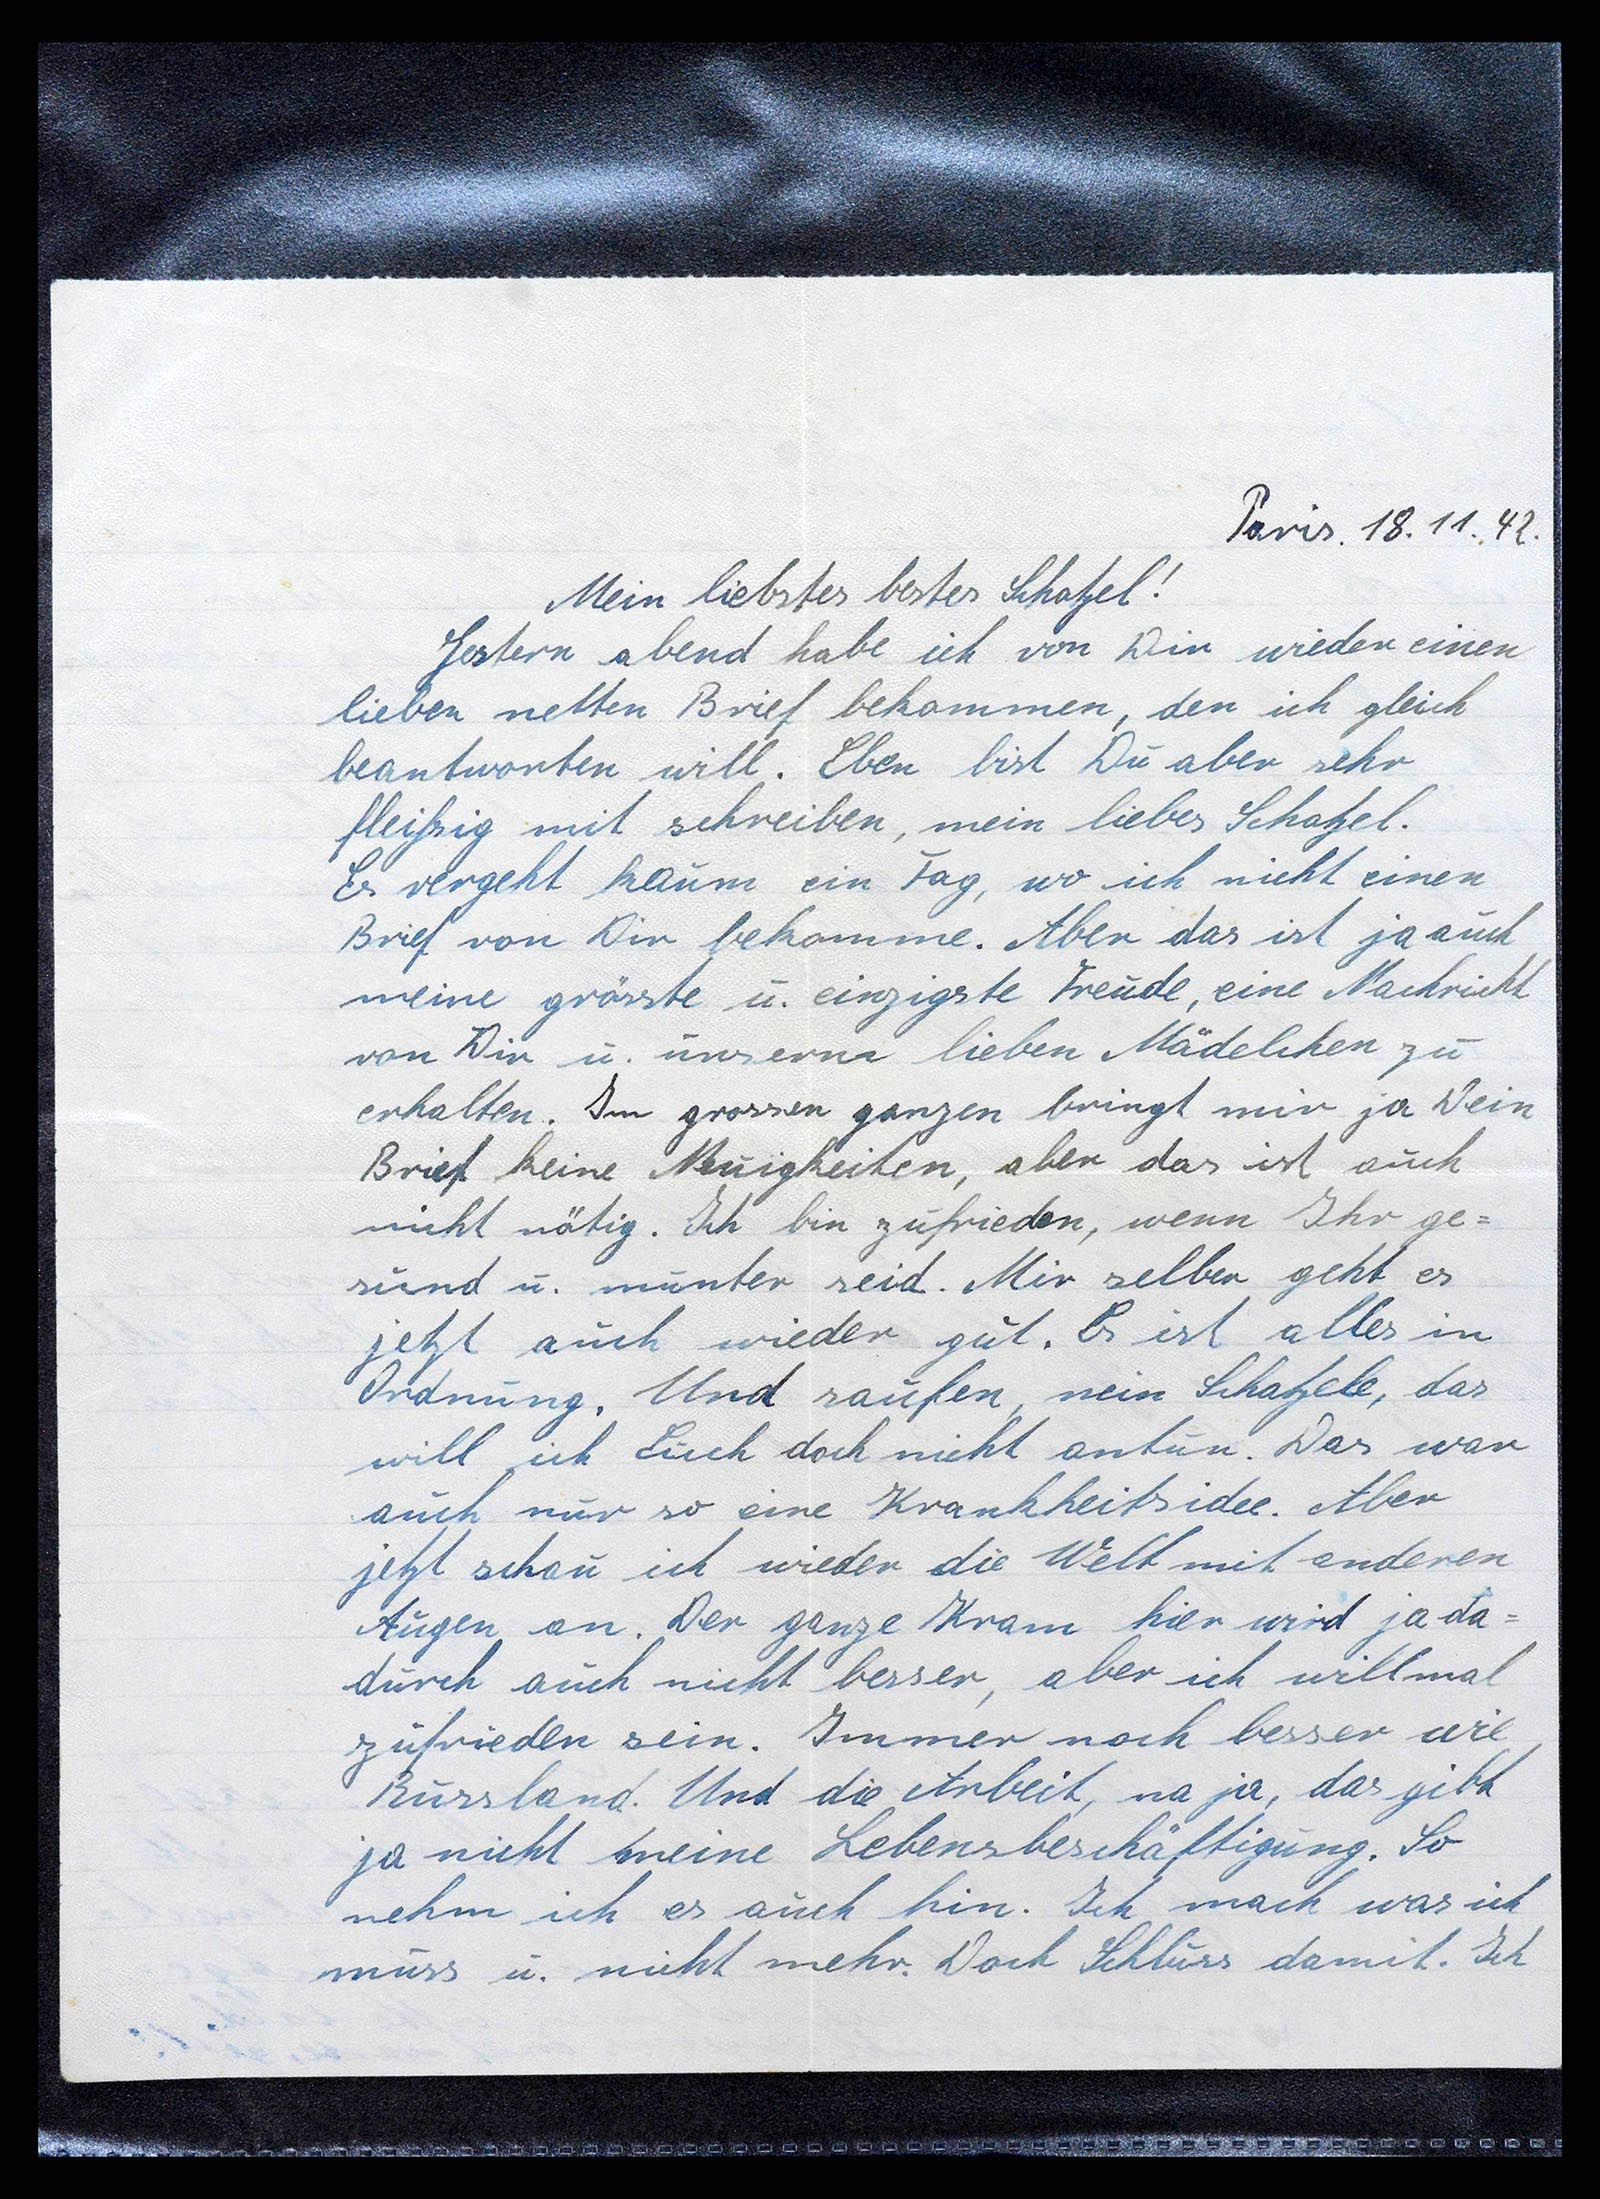 Paris. 18. 11. 42.
Mein liebstes bestes Schatzel!
Gestern abend habe ich von Dir wieder einen
lieben netten Brief bekommen, den ich gleich
beantworten will. Eben bist Du aber sehr
fleißig mit schreiben, mein liebes Schatzel.
Es vergeht kaum ein Tag, wo ich nicht einen
Brief von Dir bekomme. Aber das ist ja auch
meine grösste u. einzigste Freude, eine Nachricht
von Dir u. unserm lieben Mädelchen zu
erhalten. Im grossen ganzen bringt mir ja Dein
Brief keine Neuigkeiten, aber das ist auch
nicht nötig. Ich bin zufrieden, wenn Ihr ge=
sund u. munter seid. Mir selber geht es
jetzt auch wieder gut. Es ist alles in
Ordnung. Und saufen, nein Schatzele, das
will ich Euch doch nicht antun. Das war
auch nur so eine Krankheitsidee. Aber
jetzt schau ich wieder die Welt mit anderen
Augen an. Der ganze Kram hier wird ja da=
durch auch nicht besser, aber ich will mal
zufrieden sein. Immer noch besser wie
Russland. Und die Arbeit, na ja, das gibt
ja nicht meine Lebensbeschäftigung. So
nehm ich es auch hin. Ich mach was ich
muss u. nicht mehr. Doch Schluss damit. Ich